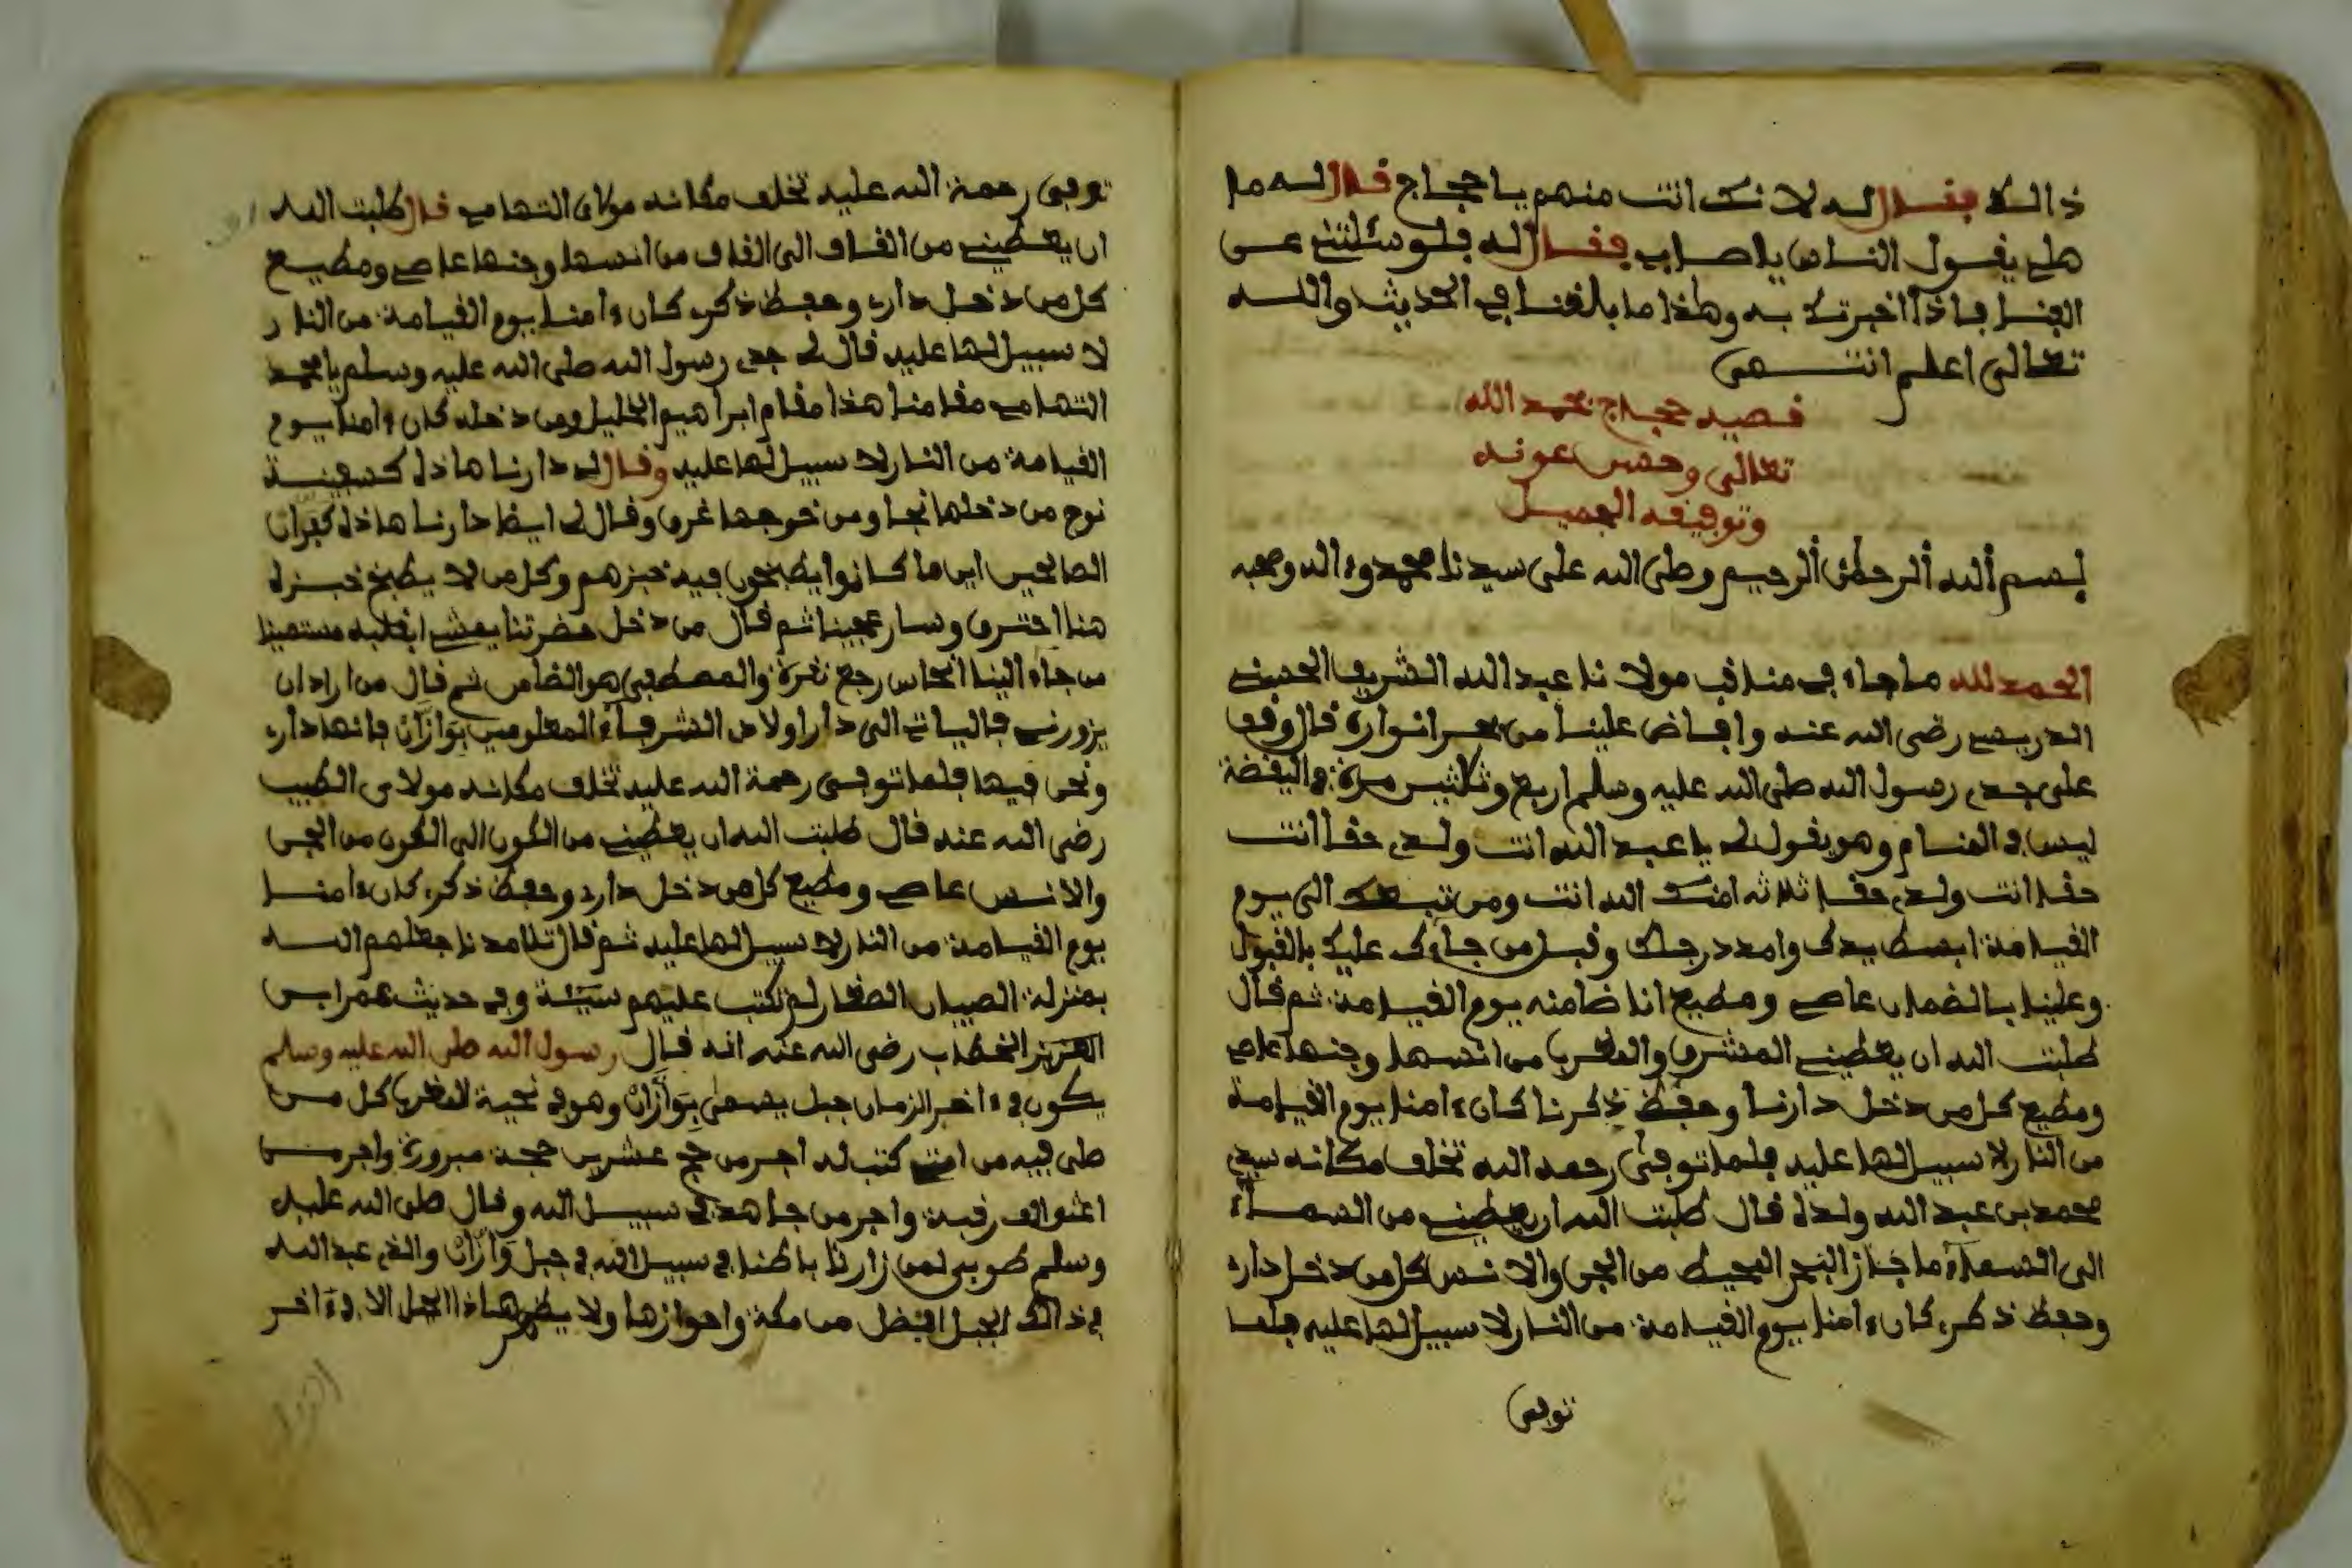 ذالك فقال له لانك انت منهم يا حجاج قال له ما
هلي يقول الناس يا صابي فقال له فلو سئلتني عن
الفنا فاذا اخبرتك به وهذا ما بلغنا في الحديث والله
تعالى اعلم انتهى
قصيد حجاج بحمد الله
تعالى وحسن عونه
وتوفيقه الجميل
بسم الله الرحمن الرحيم وصلى الله على سيدنا محمد وءاله وصحبه
الحمد لله ما جاء في مناقب مولانا عبد الله الشريف الحسني
الدريسي رضي الله عنه وافاض علينا من بحر انواره قال وقف
على جدي رسول الله صلى الله عليه وسلم اربع وثلثين مرة في اليقضة
ليس في المنام وهو يقول لي يا عبد الله انت ولدي حقا انت
حقا انت ولدي حقا ثلاثه امنك الله انت ومن تبعك الى يوم
القيامة ابسط يدك وامدد رجلك وقبل من جاءك عليك بالقبول
وعلينا بالضمان عاصي ومطيع انا ضامنه يوم القيامة ثم قال
طلبت الله ان يعطيني المشرق والمغرب من انسها وجنها عاصي
ومطيع كل من دخل دارنا وحفظ ذكرنا كان ءامنا يوم القيامة
من النار لا سبيل لها عليه فلما توفى رحمه الله تخلف مكانه سيدي
محمد بن عبد الله ولده قال طلبت الله ان يعطيني من السماء
الى السماء ما جاز البحر المحيط من الجن والانس كل من دخل داره
وحفظ ذكره كان ءامنا يوم القيامة من النار لا سبيل لها عليه فلما
توفى
توفى رحمة الله عليه تخلف مكانه مولاي التهامي قال طلبت الله
ان يعطيني من القاف الى القاف من انسها وجنها عاصي ومطيع
كل من دخل داره وحفظ ذكره كان ءامنا يوم القيامة من النار
لا سبيل لها عليه قال لي جدي رسول الله صلى الله عليه وسلم يا محمد
التهامي مقامنا هذا مقام ابراهيم الخليل ومن دخله كان ءامنا يوم
القيامة من النار لا سبيل لها عليه وقال له دارنا هاذه كسفينة
نوح من دخلها نجا ومن خرجها غرق وقال لي ايضا دارنا هاذه كفران
الصالحين اين ما كانوا يطبخون فيه خبزهم وكل من لا يطبخ خبزه
هنا احترق وسار عجينا ثم قال من دخل حضرتنا يمشي بقلبه مستعينا
من جاء الينا انحاس رجع نقرة والمصطفى هو الضامن ثم قال من اراد ان
يزورني فاليات الى دار اولاد الشرفاء المعلومين بوازان فانها داره
ونحن فيها فلما توفى رحمة الله عليه تخلف مكانه مولاي الطيب
رضي الله عنه قال طلبت الله ان يعطيني من الكون الى الكون من الجن
والانس عاصي ومطيع كل من دخل داره وحفظ ذكره كان ءامنا
يوم القيامة من النار لا سبيل لها عليه ثم قال تلامدنا جعلهم الله
بمنزلة الصبيان الصغار لم تكتب عليهم سيئة وفي حديث عمر ابن
العزيز الخطاب رضي الله عنه انه قال رسول الله صلى الله عليه وسلم
يكون في ءاخر الزمان جبل يسمى بوازان وهو في نحية المغرب كل من
صلى فيه من امتي كتب له اجر من حج عشرين حجة مبرورة واجر من
اعتق الف رقبة واجر من جاهد في سبيل الله وقال صلى الله عليه
وسلم طوبى لمن زارنا باطنا في سبيل الله في جبل وازان والذي عبد الله
في ذالك الجبل افضل من مكة واحوازها ولا يظهر هاذا الجبل الا في ءاخر